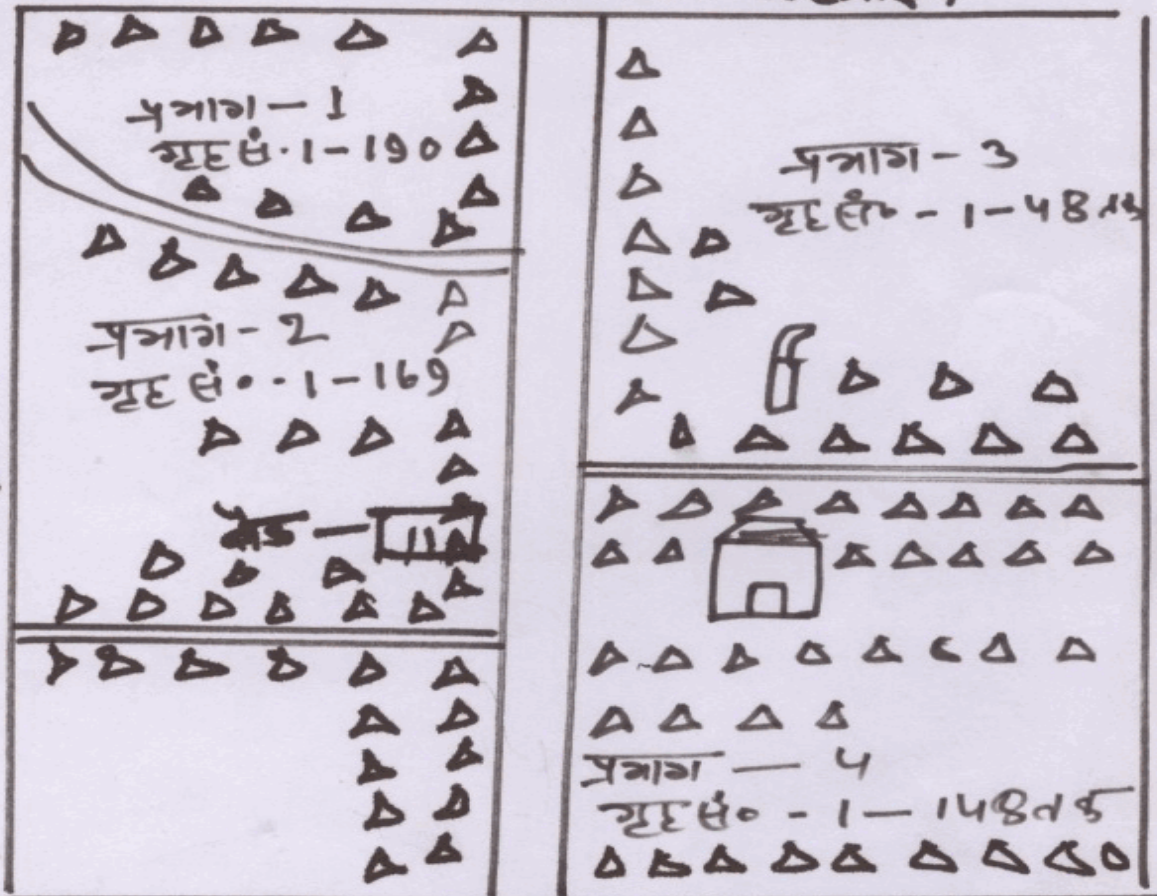 प्रभाग - 1
गृह सं. 1-190
प्रभाग - 2
गृह सं० - 1-169
11
प्रभाग - 3
गृह सं० - 1-48 तक
प्रभाग - 4
गृह सं० - 1-148 तक